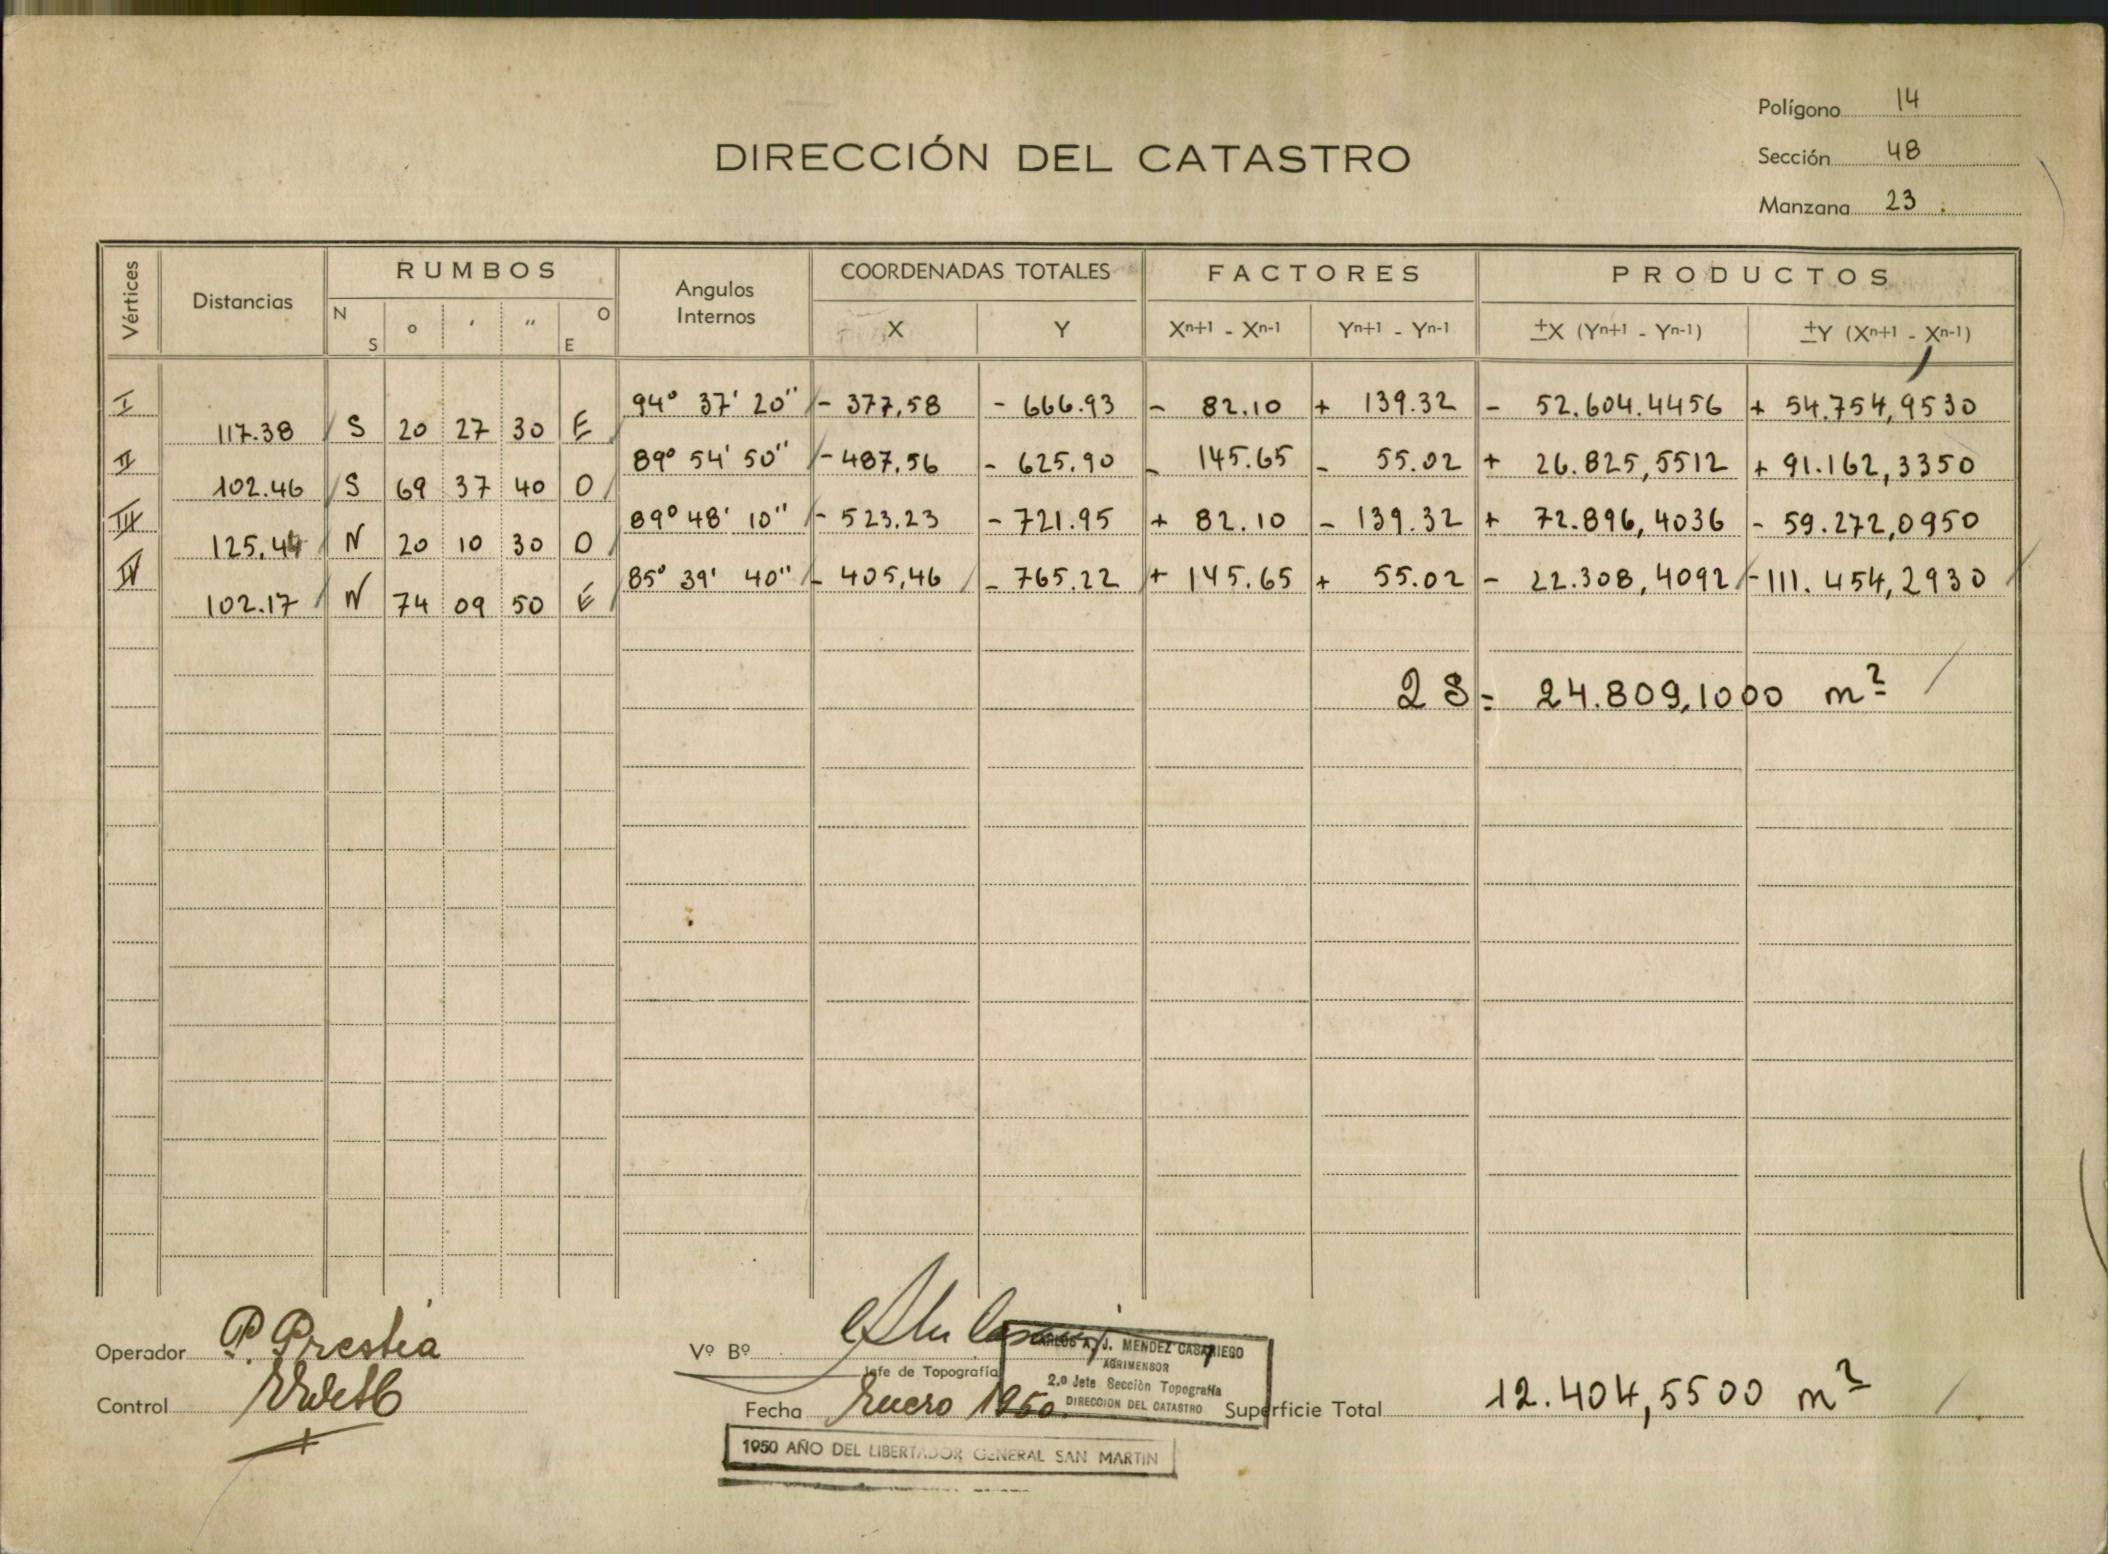 Polígono 14
DIRECCIÓN DEL CATASTRO
Sección 48
Manzana 23
Vértices
Distancias
RUMBOS
N S ° ' " O E
Angulos Internos
COORDENADAS TOTALES
X Y
FACTORES
Xn+1 - Xn-1 Yn+1 - Yn-1
PRODUCTOS
±X (Yn+1 - Yn-1) ±Y (Xn+1 - Xn-1)
I 94° 37' 20" - 377,58 - 666.93 - 82.10 + 139.32 - 52.604.4456 + 54.754,9530
117.38 S 20 27 30 E
II 89° 54' 50" - 487,56 - 625.90 - 145.65 - 55.02 + 26.825,5512 + 91.162,3350
102.46 S 69 37 40 O
III 89° 48' 10" - 523.23 - 721.95 + 82.10 - 139.32 + 72.896,4036 - 59.272,0950
125,44 N 20 10 30 O
IV 85° 39' 40" - 405,46 - 765.22 + 145.65 + 55.02 - 22.308,4092 - 111.454,2930
102.17 N 74 09 50 E
2 S = 24.809,1000 m²
Operador P. Prestia
Vº Bº
CARLOS A. J. MENDEZ CASARIEGO
AGRIMENSOR
Jefe de Topografía
2.º Jefe Sección Topografía
DIRECCION DEL CATASTRO
Control
Fecha Enero 1950
Superficie Total 12.404,5500 m²
1950 AÑO DEL LIBERTADOR GENERAL SAN MARTIN